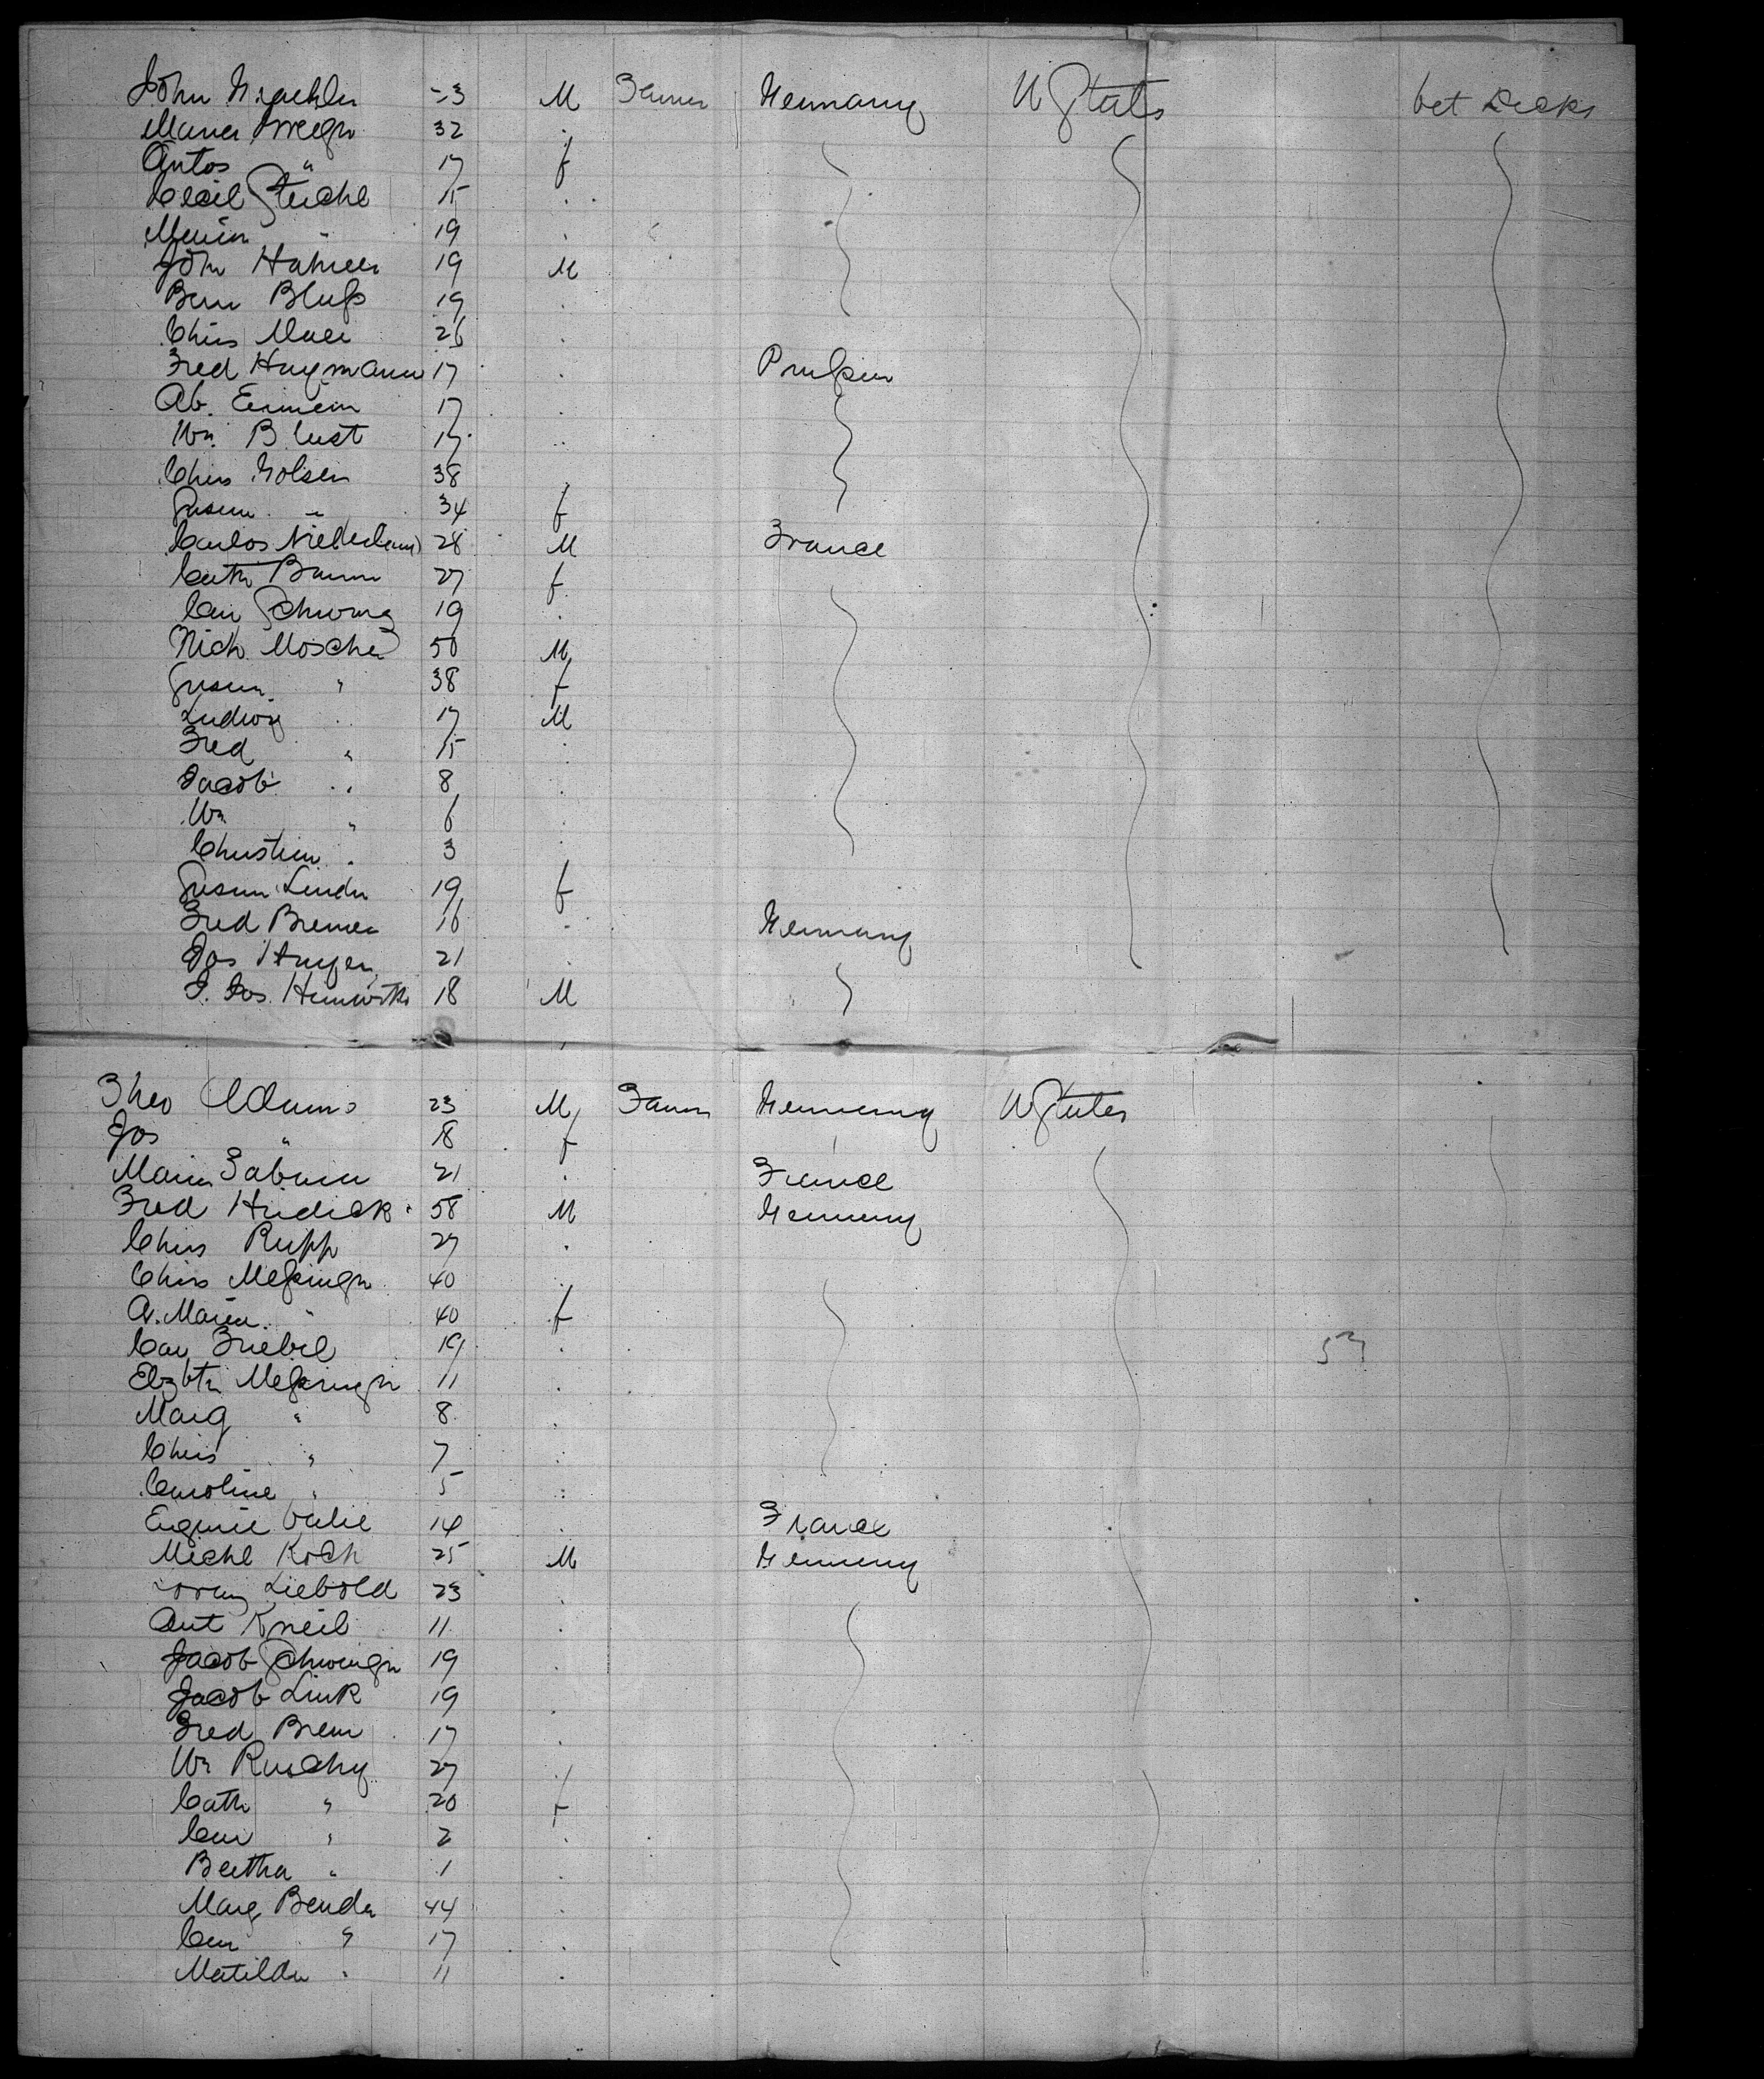 John 23 M Farmer Germany U States bet Decks
Maria 32 .
Antos " 17 f
Cecil Steichl 15 .
Maria " 19 .
John 19 M
Bern Bluß 19 .
Chris 26 .
Fred Haymann 17 . Prußen
Ab. 17 .
Wm. Blust 17 ..
Chris Golsen 38 .
Susan " 34 f
Carlos 28 M France
Cath Baum 27 f
Car 19 .
Nich Moscher 50 M
Susan " 38 f
Ludwig " 17 M
Fred " 15 .
Jacob " 8 .
Wm " 6 .
Christian " 3 .
Susan Linder 19 f
Fred Bremer 16 . Germany
Jos 21 .
J. Jos. 18 M
Theo Adams 23 M Farmer Germany U States
Jos " 18 f
Maria 21 . France
Fred Hridick 58 M Germany
Chris Rupp 27 .
Chris Meßinger 40 ..
A. Maria " 40 f
Car Friebel 19 .
Elzbth Meßinger 11 .
Marg " 8 .
Chris " 7 .
Caroline " 5 .
Eugenie 14 . France
Michl Koch 25 M Germany
Liebold 23 .
Ant Kneib 11 .
Jacob Schwinger 19 .
Jacob Link 19 .
Fred Brem 17 .
Wm Ruschy 27
Cath " 20 f
Car " 2 .
Bertha " 1 .
Marg Bender 44 .
Car " 17 .
Matilda " 11 .
53